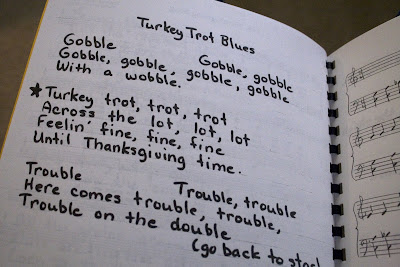 Turkey Trot Blues
Gobble Gobble, gobble
Gobble, gobble, gobble, gobble
With a wobble.
★Turkey trot, trot, trot
Across the lot, lot, lot
Feelin' fine, fine, fine
Until Thanksgiving time.
Trouble Trouble, trouble
Here comes trouble, trouble,
Trouble on the double
(go back to